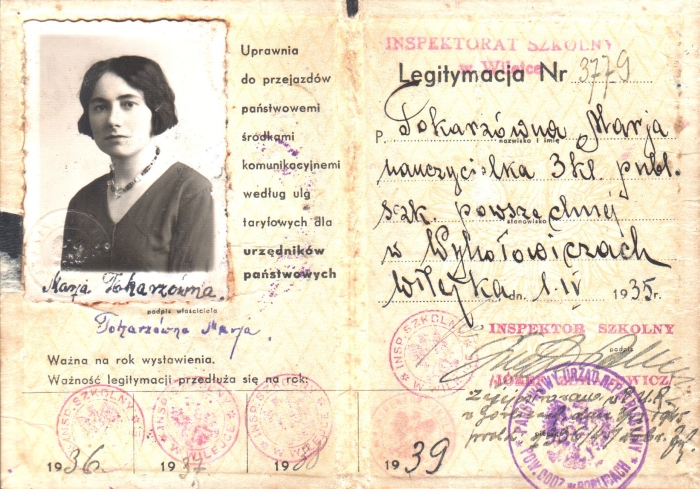 Uprawnia
do przejazdów
państwowemi
środkami
komunikacyjnemi
według ulg
taryfowych dla
urzędników
państwowych
Marja Tokarzówna
podpis właściciela
Tokarzówna Marja
Ważna na rok wystawienia.
Ważność legitymacji przedłuża się na rok:
INSP. SZKOLNY
1936.
1937
1938
INSPEKTORAT SZKOLNY
w Wilejce
Legitymacja Nr 3779
P. Tokarzówna Marja
nazwisko i imię
nauczycielka 3 kl. publ.
szk. powszechnej
stanowisko
w Wyhołowiczach
Wilejka dn. 1.IV 1935r.
INSPEKTOR SZKOLNY
podpis
INSP. SZKOLNY
Zarejestrowano
1939